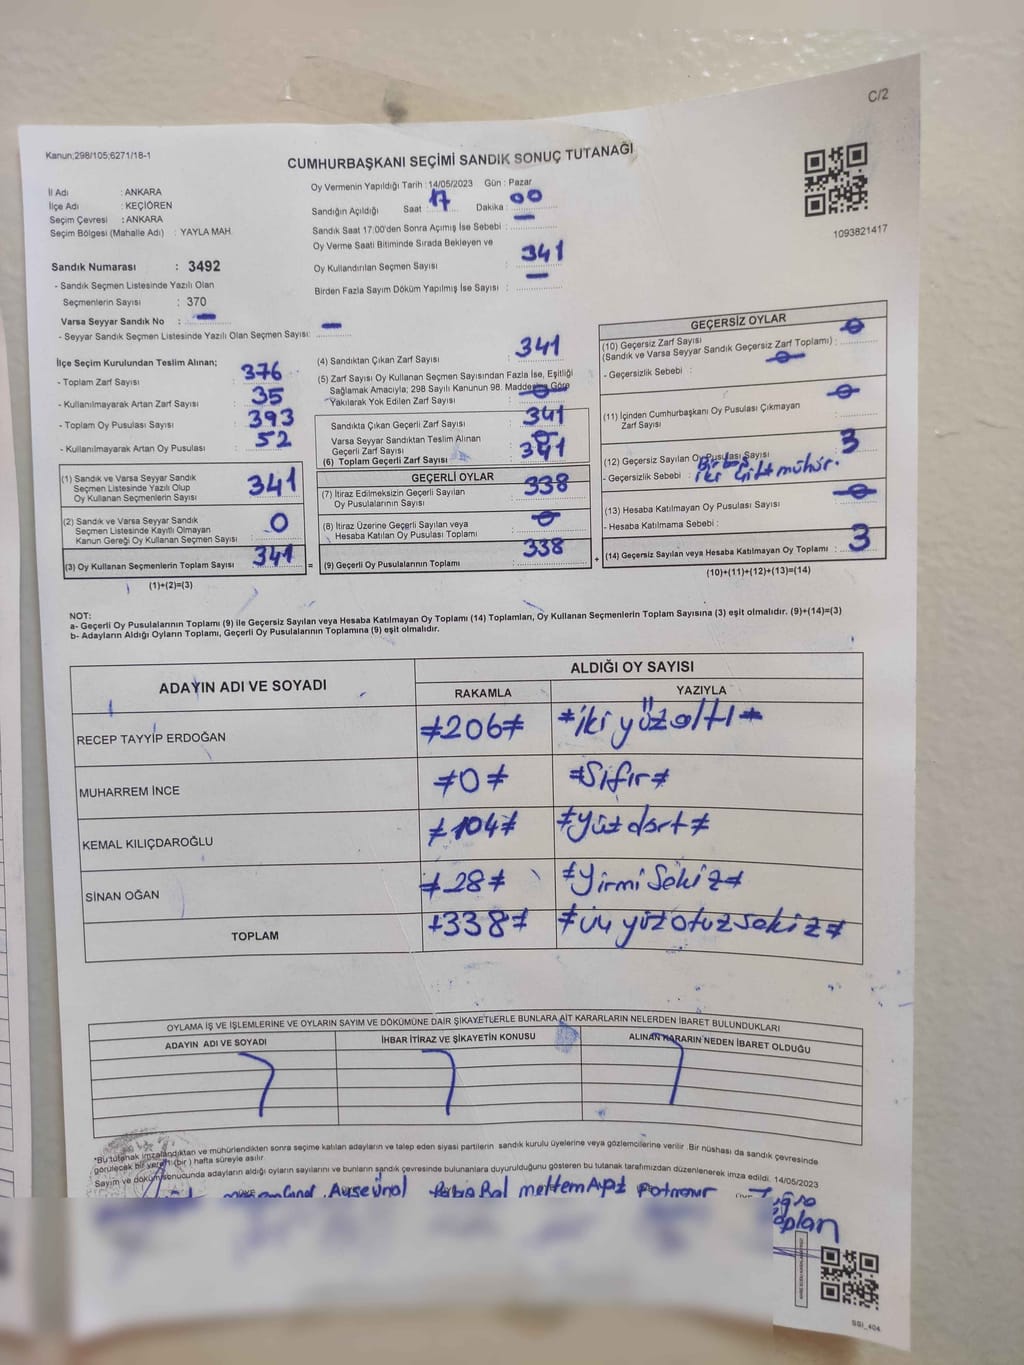 C/2
Kanun;298/105;6271/18-1
CUMHURBAŞKANI SEÇİMİ SANDIK SONUÇ TUTANAĞI
1093821417
İl Adı : ANKARA
İlçe Adı : KEÇİÖREN
Seçim Çevresi : ANKARA
Seçim Bölgesi (Mahalle Adı) : YAYLA MAH.
Sandık Numarası : 3492
- Sandık Seçmen Listesinde Yazılı Olan
Seçmenlerin Sayısı : 370
Varsa Seyyar Sandık No : -
- Seyyar Sandık Seçmen Listesinde Yazılı Olan Seçmen Sayısı: -
Oy Vermenin Yapıldığı Tarih : 14/05/2023 Gün : Pazar
Sandığın Açıldığı Saat : 17 Dakika : 00
Sandık Saat 17:00'den Sonra Açımış İse Sebebi : -
Oy Verme Saati Bitiminde Sırada Bekleyen ve
Oy Kullandırılan Seçmen Sayısı : 341
Birden Fazla Sayım Döküm Yapılmış İse Sayısı : -
İlçe Seçim Kurulundan Teslim Alınan;
- Toplam Zarf Sayısı : 376
- Kullanılmayarak Artan Zarf Sayısı : 35
- Toplam Oy Pusulası Sayısı : 393
- Kullanılmayarak Artan Oy Pusulası : 52
(1) Sandık ve Varsa Seyyar Sandık
Seçmen Listesinde Yazılı Olup
Oy Kullanan Seçmenlerin Sayısı : 341
(2) Sandık ve Varsa Seyyar Sandık
Seçmen Listesinde Kayıtlı Olmayan
Kanun Gereği Oy Kullanan Seçmen Sayısı : 0
(3) Oy Kullanan Seçmenlerin Toplam Sayısı : 341
(1)+(2)=(3)
(4) Sandıktan Çıkan Zarf Sayısı : 341
(5) Zarf Sayısı Oy Kullanan Seçmen Sayısından Fazla İse, Eşitliği
Sağlamak Amacıyla; 298 Sayılı Kanunun 98. Maddesine Göre
Yakılarak Yok Edilen Zarf Sayısı : 0
Sandıkta Çıkan Geçerli Zarf Sayısı : 341
Varsa Seyyar Sandıktan Teslim Alınan
Geçerli Zarf Sayısı : 0
(6) Toplam Geçerli Zarf Sayısı : 341
GEÇERLİ OYLAR
(7) İtiraz Edilmeksizin Geçerli Sayılan
Oy Pusulalarının Sayısı : 338
(8) İtiraz Üzerine Geçerli Sayılan veya
Hesaba Katılan Oy Pusulası Toplamı : 0
(9) Geçerli Oy Pusulalarının Toplamı : 338
GEÇERSİZ OYLAR
(10) Geçersiz Zarf Sayısı
(Sandık ve Varsa Seyyar Sandık Geçersiz Zarf Toplamı) : 0
- Geçersizlik Sebebi : 0
(11) İçinden Cumhurbaşkanı Oy Pusulası Çıkmayan
Zarf Sayısı : 0
(12) Geçersiz Sayılan Oy Pusulası Sayısı : 3
- Geçersizlik Sebebi : iki mühür.
(13) Hesaba Katılmayan Oy Pusulası Sayısı : 0
- Hesaba Katılmama Sebebi :
(14) Geçersiz Sayılan veya Hesaba Katılmayan Oy Toplamı : 3
(10)+(11)+(12)+(13)=(14)
NOT:
a- Geçerli Oy Pusulalarının Toplamı (9) ile Geçersiz Sayılan veya Hesaba Katılmayan Oy Toplamı (14) Toplamları, Oy Kullanan Seçmenlerin Toplam Sayısına (3) eşit olmalıdır. (9)+(14)=(3)
b- Adayların Aldığı Oyların Toplamı, Geçerli Oy Pusulalarının Toplamına (9) eşit olmalıdır.
ADAYIN ADI VE SOYADI ALDIĞI OY SAYISI
RAKAMLA YAZIYLA
RECEP TAYYİP ERDOĞAN ≠206≠ *iki yüz altı*
MUHARREM İNCE ≠0≠ ≠Sıfır≠
KEMAL KILIÇDAROĞLU ≠104≠ ≠Yüz dört≠
SİNAN OĞAN ≠28≠ ≠Yirmi Sekiz≠
TOPLAM ≠338≠ ≠üç yüz otuz sekiz≠
OYLAMA İŞ VE İŞLEMLERİNE VE OYLARIN SAYIM VE DÖKÜMÜNE DAİR ŞİKAYETLERLE BUNLARA AİT KARARLARIN NELERDEN İBARET BULUNDUKLARI
ADAYIN ADI VE SOYADI İHBAR İTİRAZ VE ŞİKAYETİN KONUSU ALINAN KARARIN NEDEN İBARET OLDUĞU
*Bu tutanak imzalandıktan ve mühürlendikten sonra seçime katılan adayların ve talep eden siyasi partilerin sandık kurulu üyelerine veya gözlemcilerine verilir. Bir nüshası da sandık çevresinde
görülecek bir yere 1 (bir) hafta süreyle asılır.
Sayım ve döküm sonucunda adayların aldığı oyların sayılarını ve bunların sandık çevresinde bulunanlara duyurulduğunu gösteren bu tutanak tarafımızdan düzenlenerek imza edildi. 14/05/2023
SGI_404